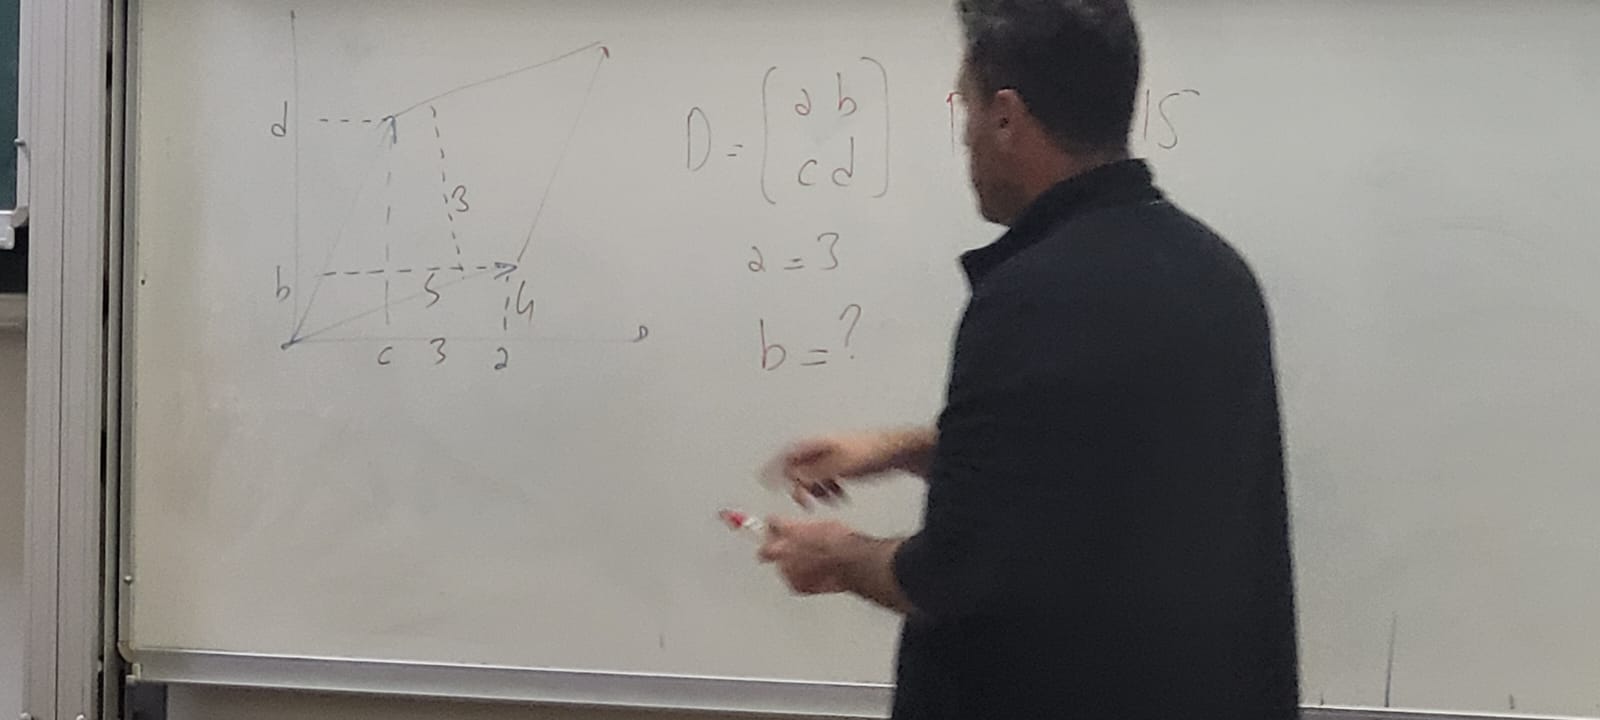 d
3
b
5
4
c 3 a
D = ( a b
c d )
15
a = 3
b = ?